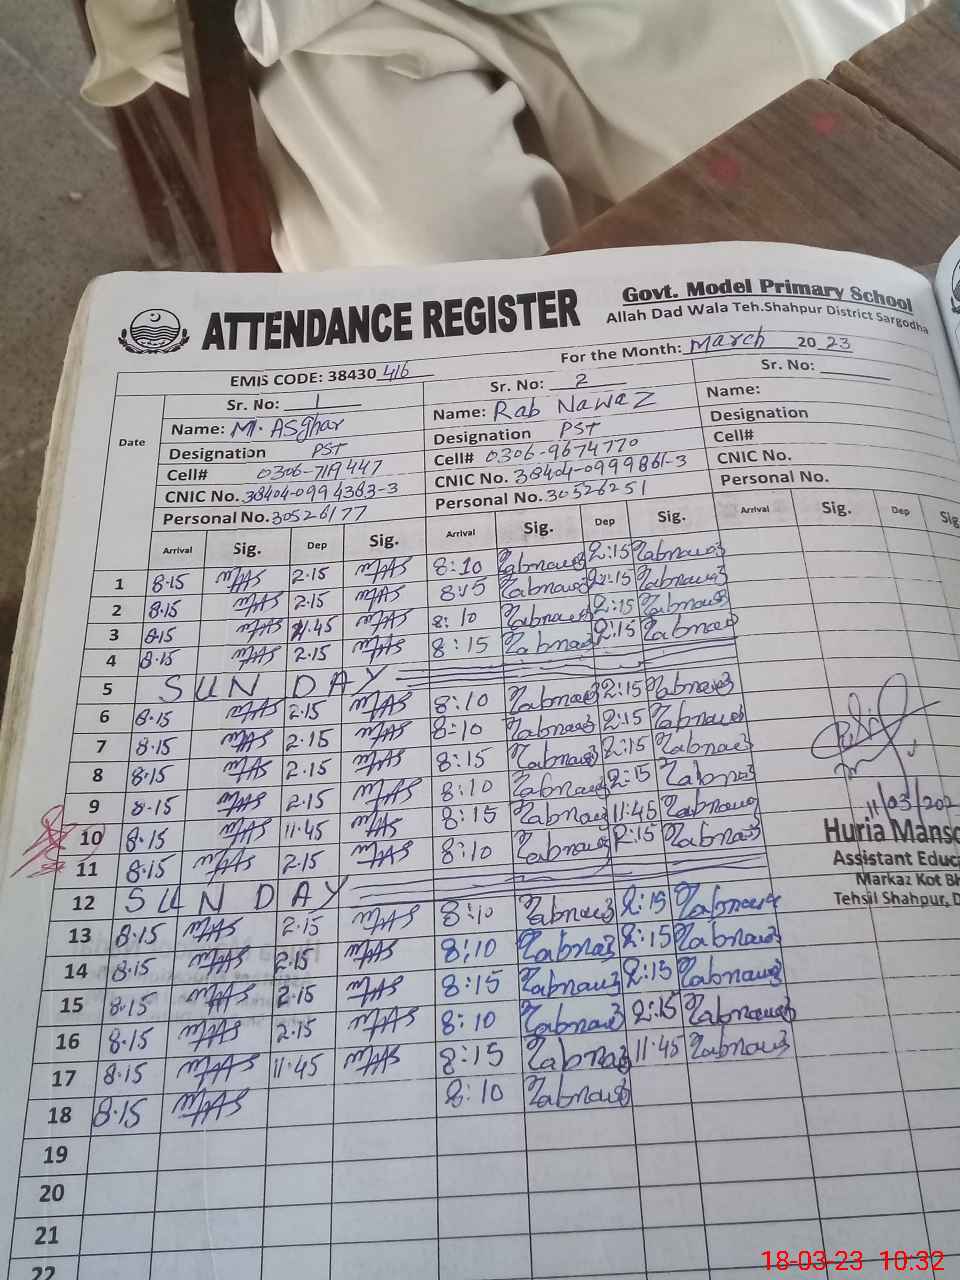 ATTENDANCE REGISTER
Govt. Model Primary School
Allah Dad Wala Teh.Shahpur District Sargodha
EMIS CODE: 38430 416
For the Month: March 2023
Sr. No: 1 Sr. No: 2 Sr. No:
Date
Name: M. Asghar Name: Rab Nawaz Name:
Designation PST Designation PST Designation
Cell# 0306-719447 Cell# 0306-9674770 Cell#
CNIC No. 38404-0994383-3 CNIC No. 38404-0999861-3 CNIC No.
Personal No. 30526177 Personal No. 30526251 Personal No.
Arrival Sig. Dep Sig. Arrival Sig. Dep Sig. Arrival Sig. Dep Sig
1 8.15 2.15 8:10 Rabnawaz 2:15 Rabnawaz
2 8.15 2.15 8:15 Rabnawaz 2:15 Rabnawaz
3 8.15 11.45 8:10 Rabnawaz Rabnawaz
4 8.15 2.15 8:15 Rabnawaz 2:15 Rabnawaz
5 SUN DAY
6 8.15 2.15 8:10 Rabnawaz 2:15 Rabnawaz
7 8.15 2.15 8:10 Rabnawaz 2:15 Rabnawaz
8 8.15 2.15 8:15 Rabnawaz 2:15 Rabnawaz
9 8.15 2.15 8:10 Rabnawaz 2:15 Rabnawaz
10 8.15 11.45 8:15 Rabnawaz 11:45 Rabnawaz
11 8.15 2.15 8:10 Rabnawaz 2:15 Rabnawaz
12 SUN DAY
13 8.15 2.15 8:10 Rabnawaz 2:15 Rabnawaz
14 8.15 2.15 8:10 Rabnawaz 2:15 Rabnawaz
15 8.15 2.15 8:15 Rabnawaz 2:15 Rabnawaz
16 8.15 2.15 8:10 Rabnawaz 2:15 Rabnawaz
17 8.15 11.45 8:15 Rabnawaz 11:45 Rabnawaz
18 8.15 8:10 Rabnawaz
19
20
21
22
11/03/202
Huria Manso
Assistant Educa
Markaz Kot Bh
Tehsil Shahpur, D
18-03-23 10:32